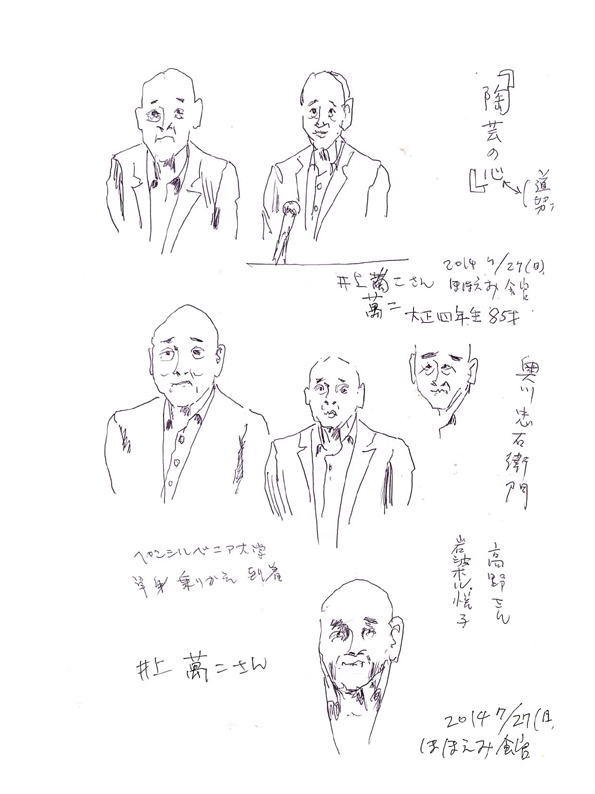 『陶芸の心』
(道
努
2014 7/27(日)
井上萬二さん ほほえみ館
萬二
大正四年生 85才
奥川忠右衛門
ペンシルベニア大学
単身 乗りかえ 到着
高野さん
岩波ホール 悦子
井上 萬二さん
2014 7/27(日)
ほほえみ館